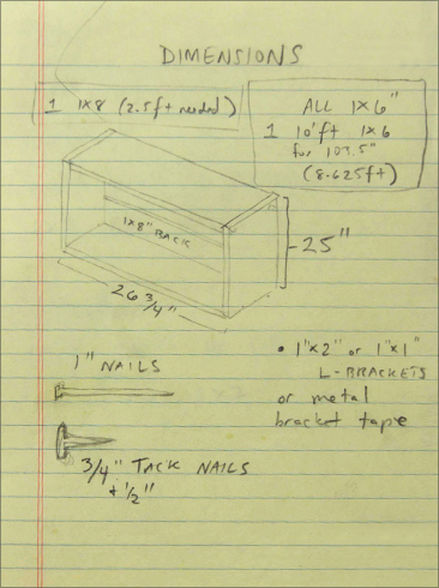 DIMENSIONS
1 1X8 (2.5ft needed)
ALL 1X6"
1 10'ft 1X6
for 103.5"
(8.625ft)
1X8" BACK
25"
26 3/4"
1" NAILS
• 1"x2" or 1"x1"
L-BRACKETS
or metal
bracket tape
3/4" TACK NAILS
+ 1/2"